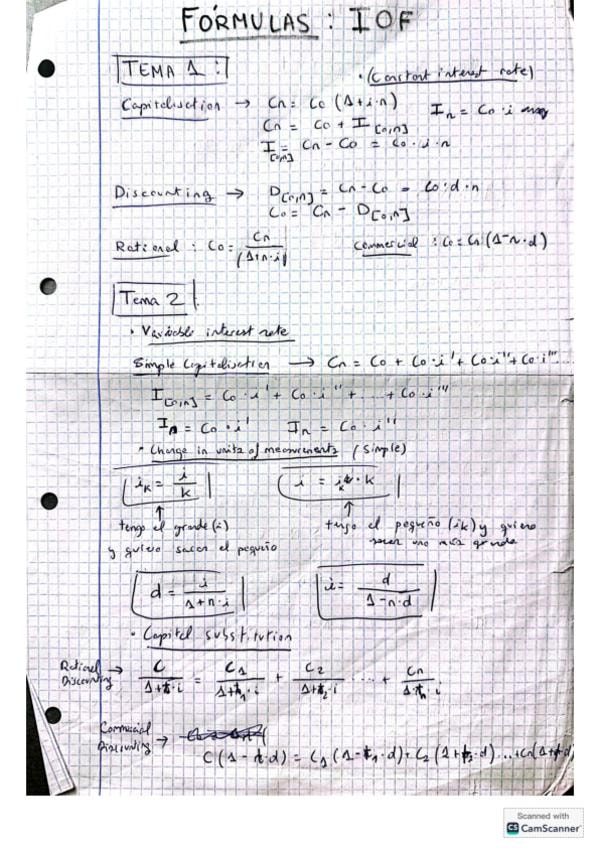 FÓRMULAS : IOF
TEMA 1 :
· (Constant interest rate)
Capitalisation → Cn = Co (1+i·n) In = Co · i
Cn = Co + I[0,n]
I[0,n] = Cn - Co = Co · i · n
Discounting → D[0,n] = Cn - Co = Co · d · n
Co = Cn - D[0,n]
Rational : Co = Cn / (1+n·i) Commercial : Co = Cn (1-n·d)
Tema 2
· Variable interest rate
Simple Capitalisation → Cn = Co + Co·i' + Co·i'' + Co·i''' ...
I[0,n] = Co · i' + Co · i'' + ... + Co · i'''
In = Co · i' In = Co · i''
· Change in units of measurements (Simple)
ik = i / k i = ik · k
tengo el grande (i) tengo el pequeño (ik) y quiero
y quiero sacar el pequeño sacar uno más grande
d = i / 1+n·i i = d / 1-n·d
· Capital substitution
Rational Discounting → C / 1+t·i = C1 / 1+t1·i + C2 / 1+t2·i ... + Cn / 1·tn·i
Commercial Discounting →
C(1-t·d) = C1(1-t1·d) + C2(1+t2·d) ... + Cn(1+t·d)
Scanned with
CS CamScanner